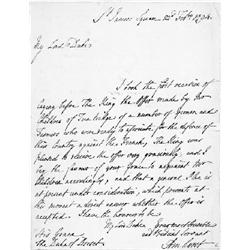 St James Square 12th Feby 1794.
My Lord Duke
I took the first occasion of
laying before The King the offer made by Mr
Children of Tunbridge of a number of Yeomen and
Farmers who were ready to associate for the defence of
this Country against the French, The King was
pleased to receive the offer very graciously, and I
beg the favour of your Grace to acquaint Mr
Children accordingly, and that at present the
is at present under consideration, which prevents at
the moment a direct answer whether the offer is
accepted. I have the honor to be
My Lord Duke
Your Grace's
and obedient Servant
His Grace
The Duke of Dorset